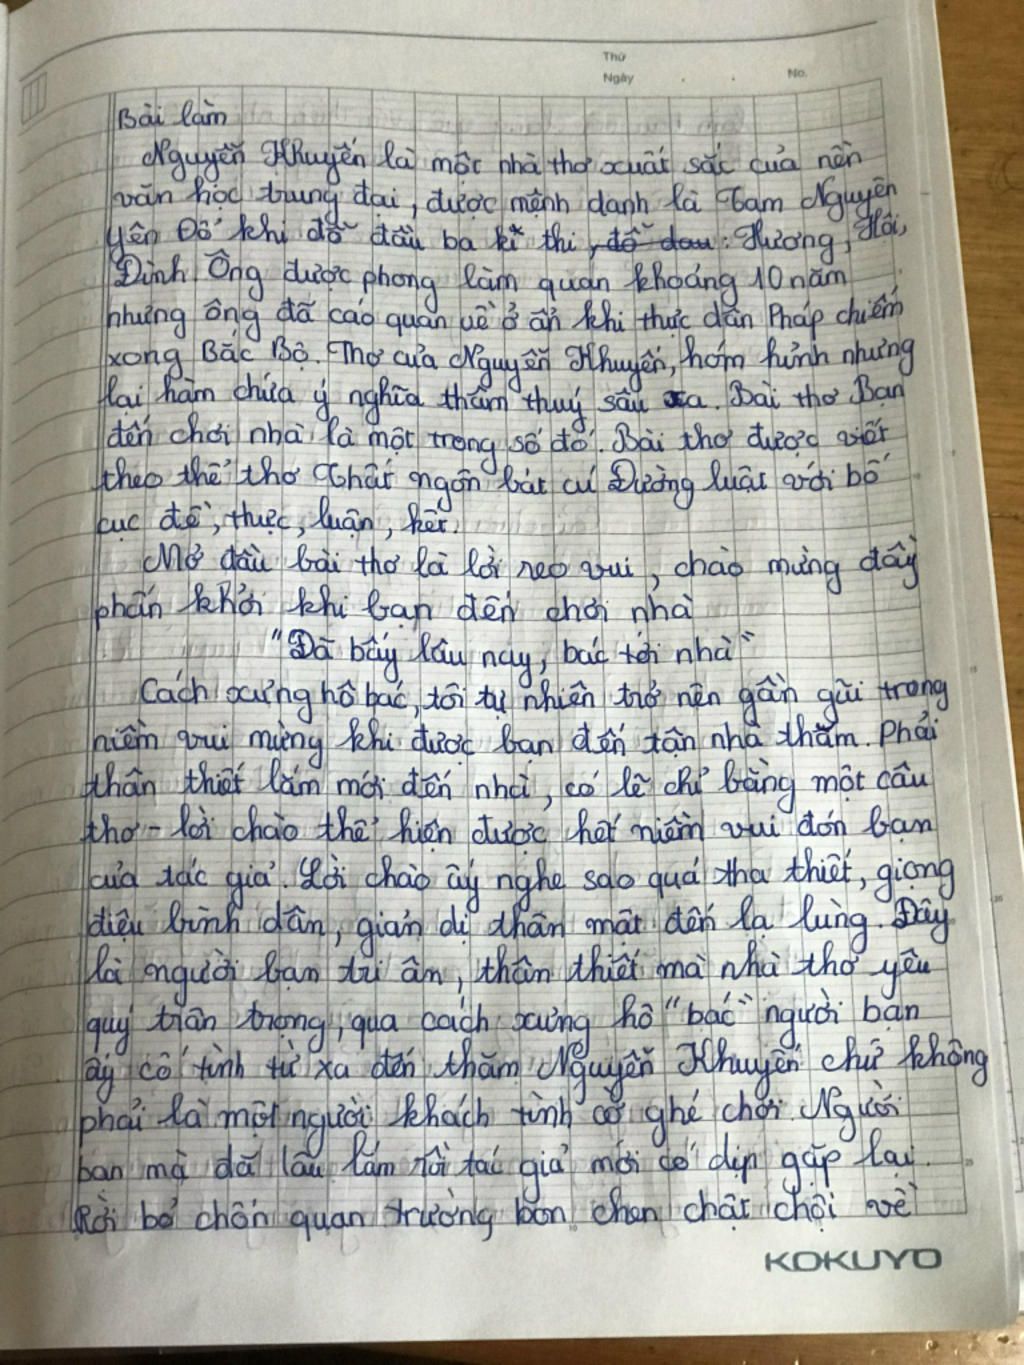 Thứ
Ngày . . No.
Bài làm
Nguyễn Khuyến là một nhà thơ xuất sắc của nền
văn học trung đại, được mệnh danh là Tam Nguyên
Yên Đổ khi đỗ đầu ba kì thi, đỗ đầu: Hương, Hội,
Đình Ông được phong làm quan khoảng 10 năm
nhưng ông đã cáo quan về ở ẩn khi thực dân Pháp chiếm
xong Bắc Bộ. Thơ của Nguyễn Khuyến, hóm hỉnh nhưng
lại hàm chứa ý nghĩa thâm thuý sâu xa. Bài thơ Bạn
đến chơi nhà là một trong số đó. Bài thơ được viết
theo thể thơ Thất ngôn bát cú Đường luật với bố
cục đề, thực, luận, kết.
Mở đầu bài thơ là lời reo vui, chào mừng đầy
phấn khởi khi bạn đến chơi nhà
"Đã bấy lâu nay, bác tới nhà"
Cách xưng hô bác, tôi tự nhiên trở nên gần gũi trong
niềm vui mừng khi được bạn đến tận nhà thăm. Phải
thân thiết lắm mới đến nhà, có lẽ chỉ bằng một câu
thơ - lời chào thể hiện được hết niềm vui đón bạn
của tác giả. Lời chào ấy nghe sao quá tha thiết, giọng
điệu bình dân, giản dị thân mật đến lạ lùng. Đây
là người bạn tri âm, thân thiết mà nhà thơ yêu
quý trân trọng, qua cách xưng hô "bác" người bạn
ấy cố tình từ xa đến thăm Nguyễn Khuyến chứ không
phải là một người khách tình cờ ghé chơi. Người
bạn mà đã lâu lắm rồi tác giả mới có dịp gặp lại.
Rời bỏ chốn quan trường bon chen chật chội về
KOKUYO